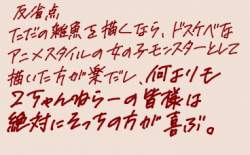 反省点
ただの雑魚を描くなら、ドスケベな
アニメスタイルの女の子モンスターとして
描いた方が楽だし、何よりも
2ちゃんねらーの皆様は
絶対にそっちの方が喜ぶ。